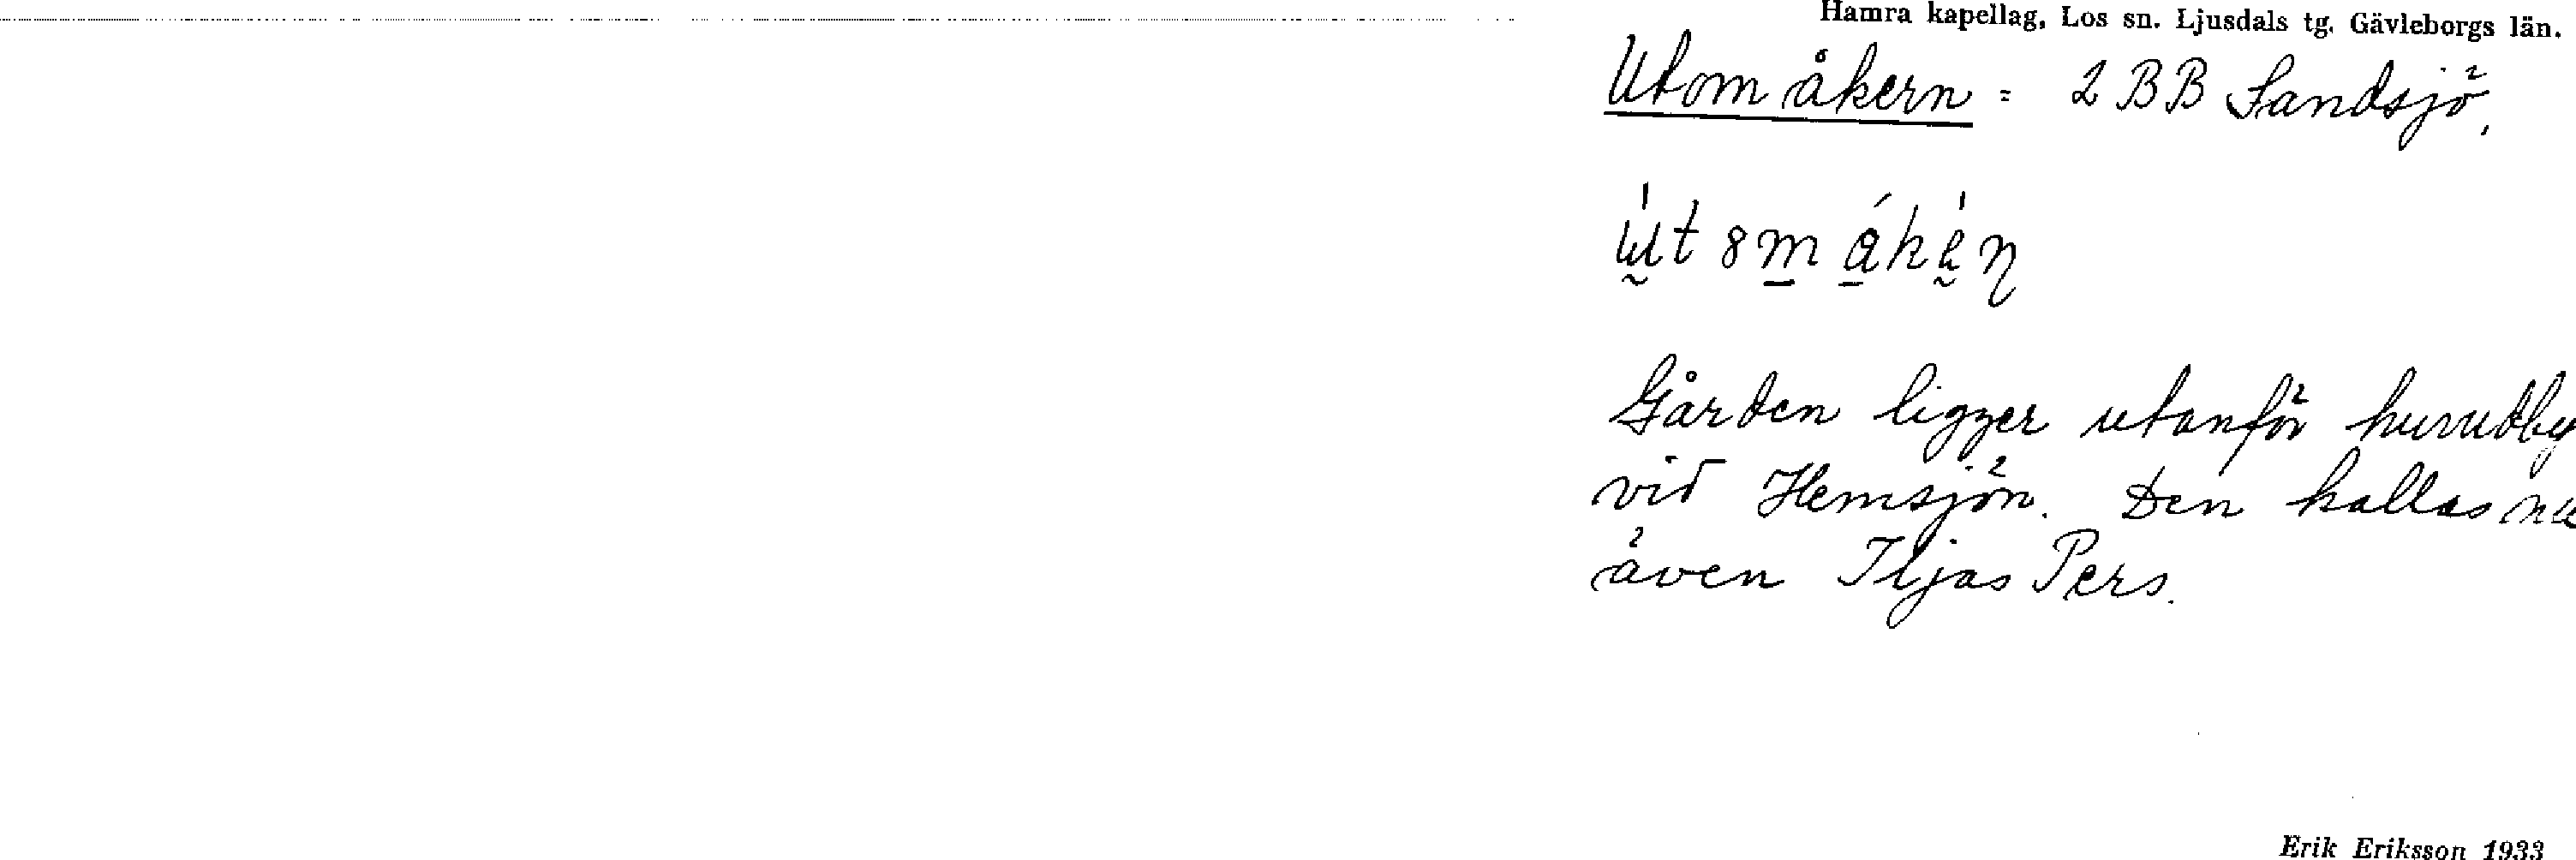 Hamra kapellag, Los sn. Ljusdals tg. Gävleborgs län.
Utom åkern = 2 BB Sandsjö,
Gården ligger utanför huvudby
vid Hemsjön. Den kallas nu
även Iljas Pers.
Erik Eriksson 1933